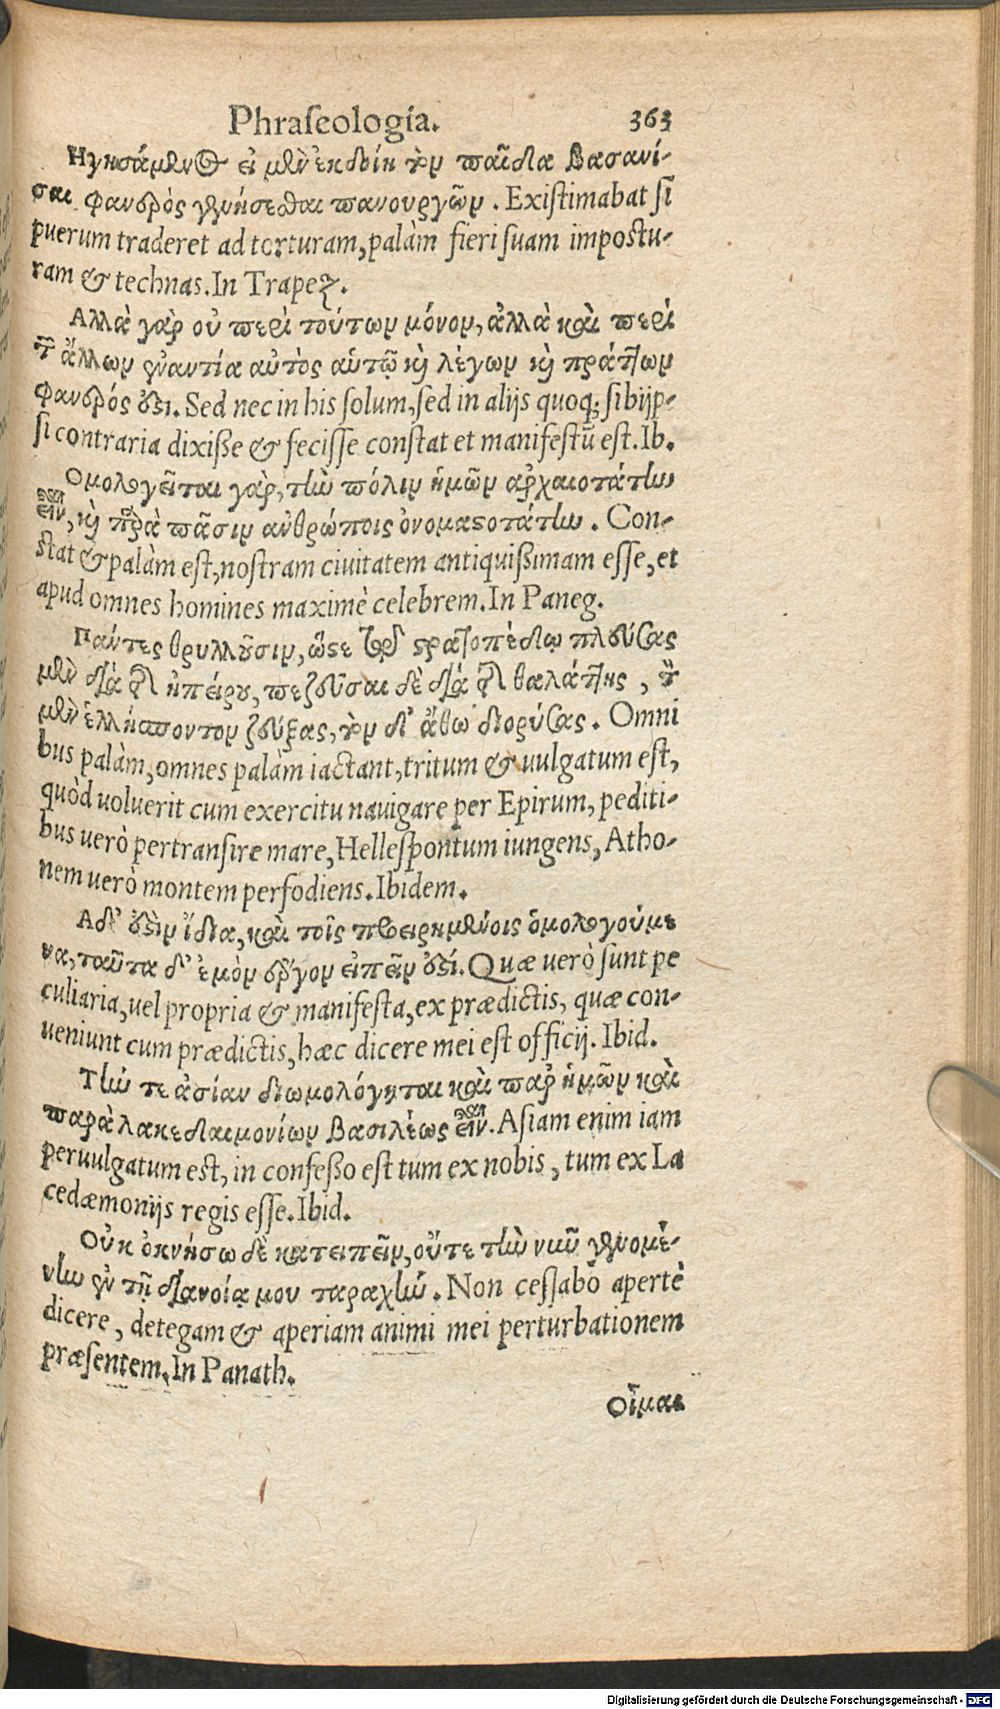 Phraſeologia. 363
Ηγησάμενος εἰ μὲν ἐκδοίη τὸν παῖδα βασανί-
σαι φανερὸς γενήσεσθαι πανουργῶν. Existimabat ſi
puerum traderet ad torturam, palàm fieri ſuam impoſtu-
ram & technas. In Trapez.
Αλλὰ γὰρ οὐ περὶ τούτων μόνον, ἀλλὰ καὶ περὶ
τῶν ἄλλων ἐναντία αὐτὸς αὑτῷ καὶ λέγων καὶ πράττων
φανερός ἐστι. Sed nec in his ſolum, ſed in alijs quoq; ſibijp-
ſi contraria dixiſſe & feciſſe conſtat et manifeſtū est. Ib.
Ομολογεῖται γὰρ, τὴν πόλιν ἡμῶν ἀρχαιοτάτην
εἶναι, καὶ παρὰ πᾶσιν ἀνθρώποις ὀνομαστοτάτην. Con-
ſtat & palàm eſt, noſtram ciuitatem antiquißimam eſſe, et
apud omnes homines maximè celebrem. In Paneg.
Πάντες θρυλλοῦσιν, ὥστε τῷ στρατοπέδῳ πλεύσας
μὲν διὰ τῆς ἠπείρου, πεζεῦσαι δὲ διὰ τῆς θαλάττης, τὸν
μὲν ἑλλήσποντον ζεύξας, τὸν δ' ἄθω διορύξας. Omni
bus palàm, omnes palàm iactant, tritum & uulgatum eſt,
quòd uoluerit cum exercitu nauigare per Epirum, pediti-
bus uerò pertranſire mare, Helleſpontum iungens, Atho-
nem uerò montem perfodiens. Ibidem.
Αδ' ἐστὶν ἴδια, καὶ τοῖς προειρημένοις ὁμολογούμε
να, ταῦτα δ' ἐμὸν ἔργον εἰπεῖν ἐστί. Quæ uerò ſunt pe
culiaria, uel propria & manifeſta, ex prædictis, quæ con-
ueniunt cum prædictis, hæc dicere mei est officij. Ibid.
Τήν τε ἀσίαν διωμολόγηται καὶ παρ' ἡμῶν καὶ
παρὰ λακεδαιμονίων βασιλέως εἶναι. Aſiam enim iam
peruulgatum est, in confeßo est tum ex nobis, tum ex La
cedæmonijs regis eſſe. Ibid.
Οὐκ ὀκνήσω δὲ κατειπεῖν, οὔτε τὴν νῦν γενομέ-
νην ἐν τῇ διανοίᾳ μου ταραχήν. Non ceſſabo apertè
dicere, detegam & aperiam animi mei perturbationem
præſentem. In Panath.
Οἶμαι
Digitalisierung gefördert durch die Deutsche Forschungsgemeinschaft - DFG